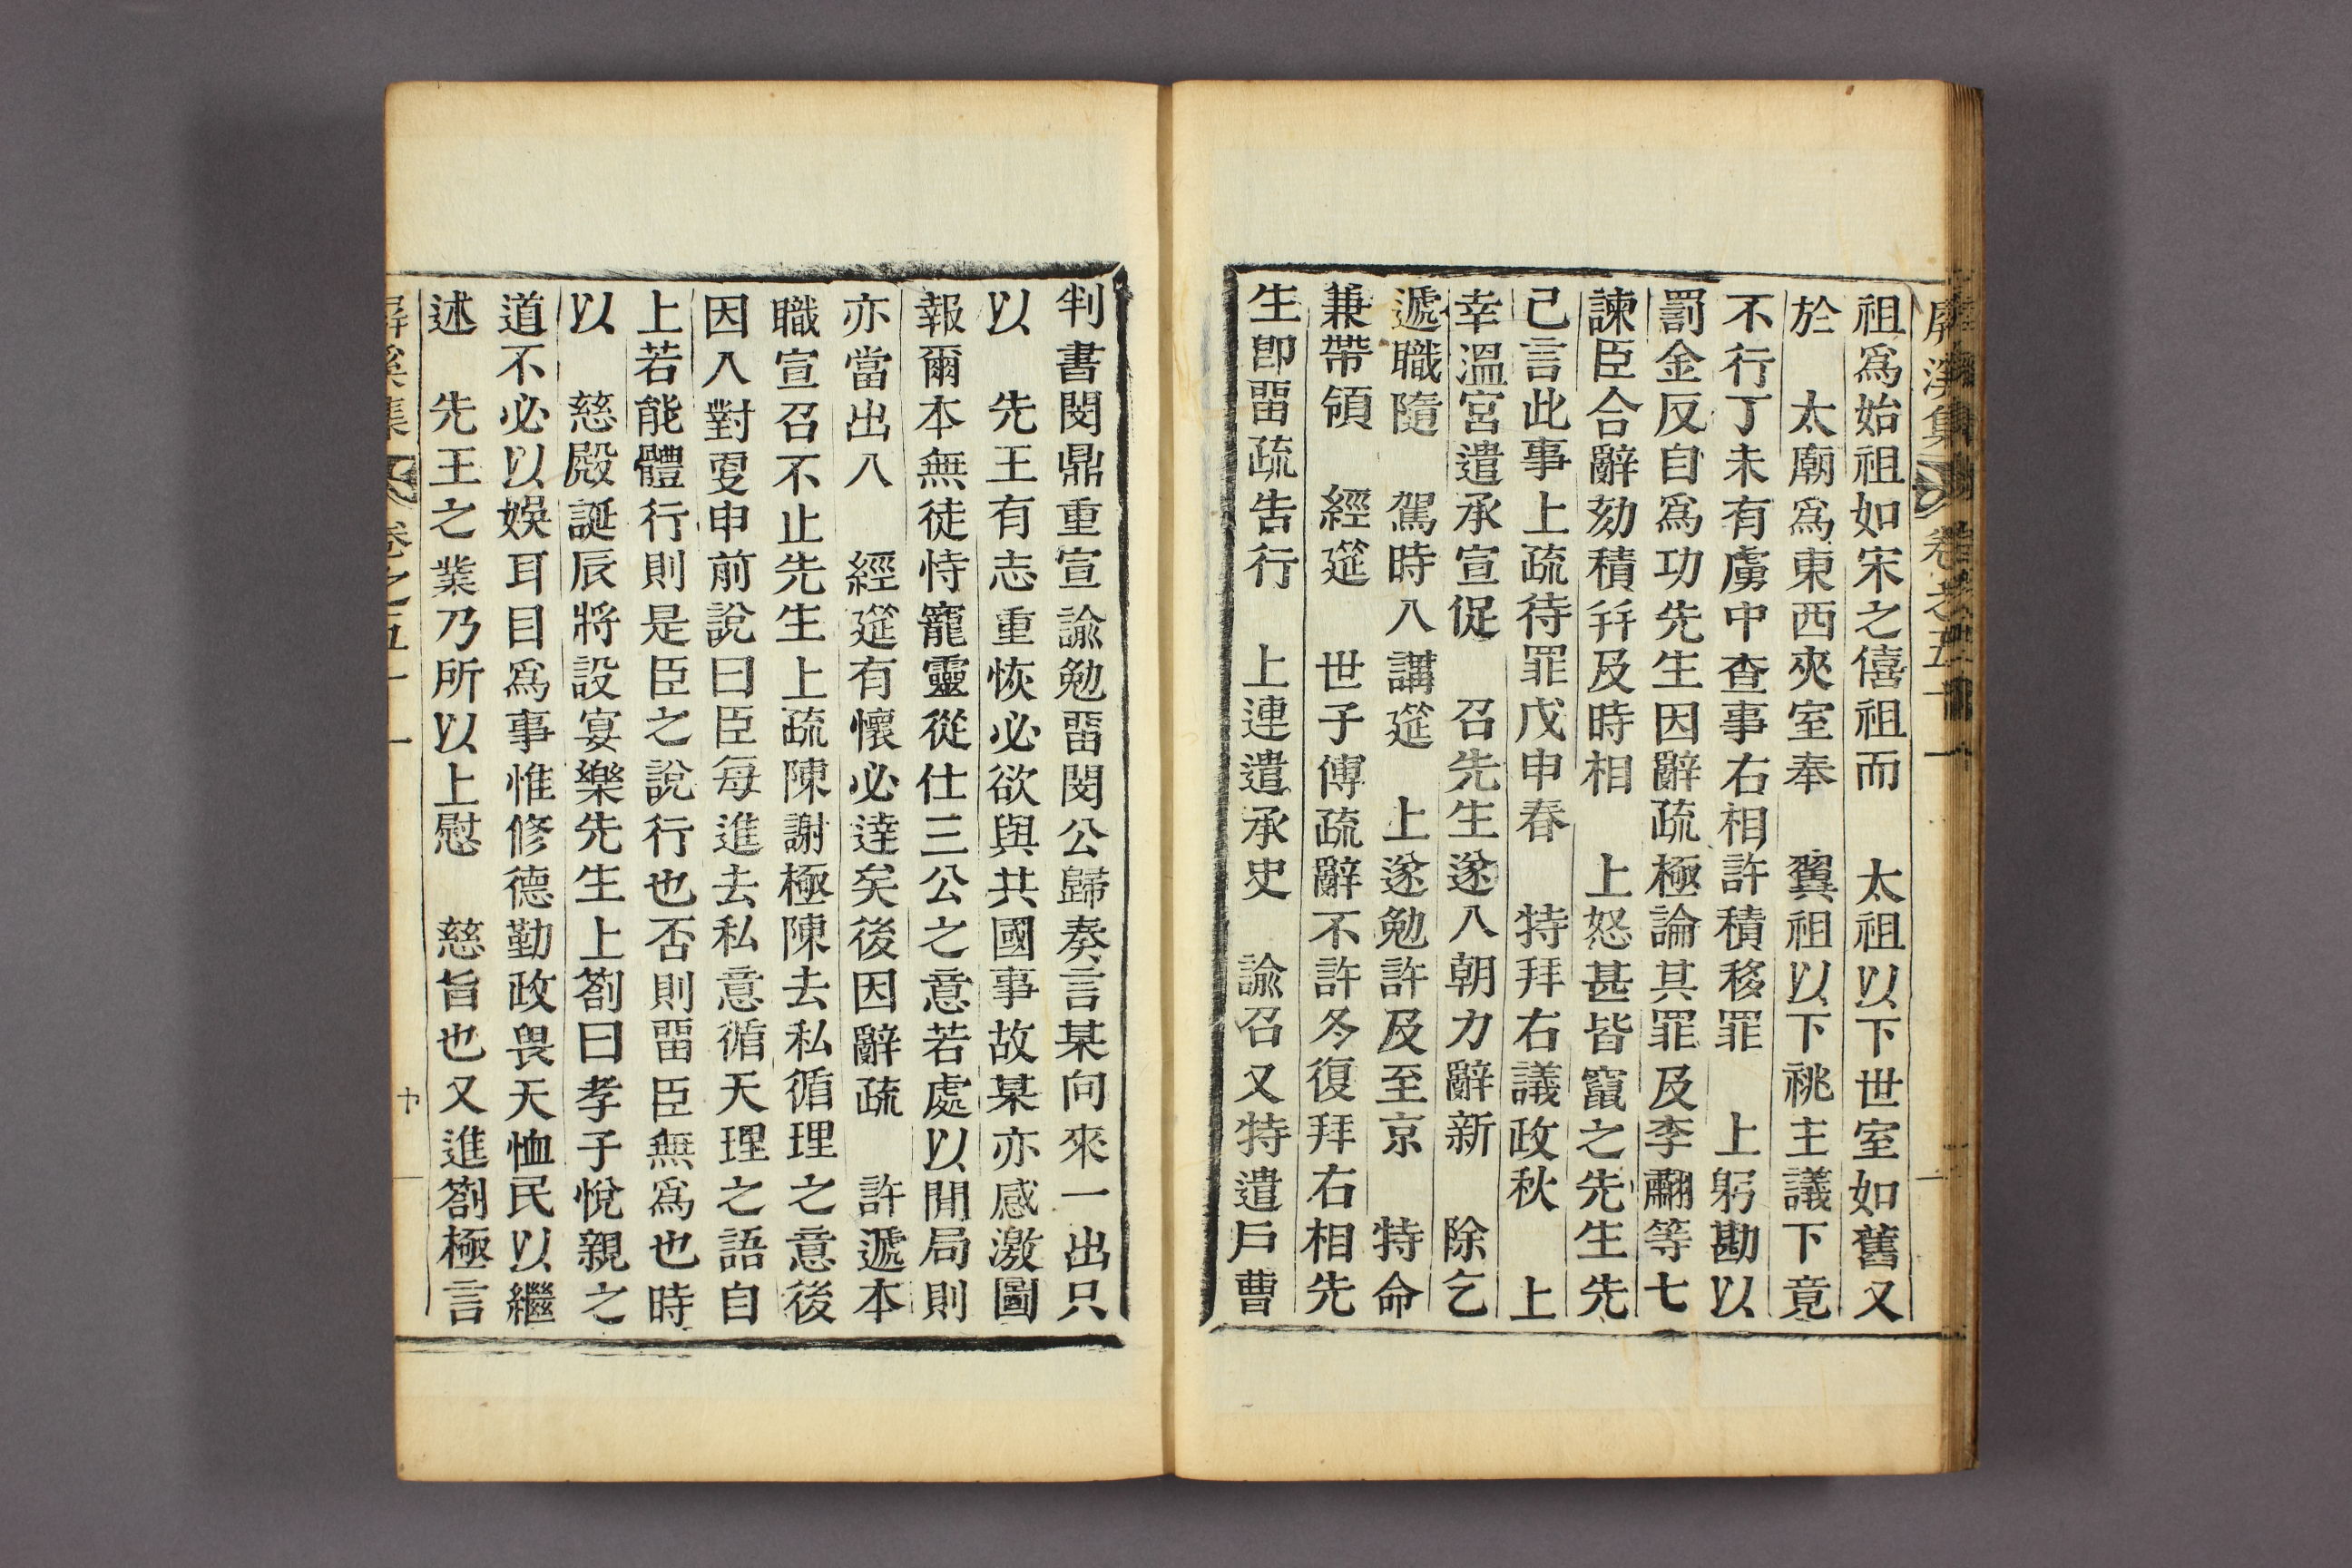 屛溪集 卷之五十一
祖爲始祖如宋之僖祖而 太祖以下世室如舊又
於 太廟爲東西夾室奉 翼祖以下祧主議下竟
不行丁未有虜中査事右相許積移罪 上躬勘以
罰金反自爲功先生因辭疏極論其罪及李翽等七
諫臣合辭劾積幷及時相 上怒甚皆竄之先生先
已言此事上疏待罪戊申春 特拜右議政秋 上
幸溫宮遣承宣促 召先生遂入朝力辭新 除乞
遞職隨 駕時入講筵 上遂勉許及至京 特命
兼帶領 經筵 世子傅疏辭不許冬復拜右相先
生卽畱疏告行 上連遣承史 諭召又特遣戶曹
判書閔鼎重宣諭勉畱閔公歸奏言某向來一出只
以 先王有志重恢必欲與共國事故某亦感激圖
報爾本無徒恃寵靈從仕三公之意若處以閒局則
亦當出入 經筵有懷必達矣後因辭疏 許遞本
職宣召不止先生上疏陳謝極陳去私循理之意後
因入對更申前說曰臣每進去私意循天理之語自
上若能體行則是臣之說行也否則畱臣無爲也時
以 慈殿誕辰將設宴樂先生上箚曰孝子悅親之
道不必以娛耳目爲事惟修德勤政畏天恤民以繼
述 先王之業乃所以上慰 慈旨也又進箚極言
屛溪集 卷之五十一